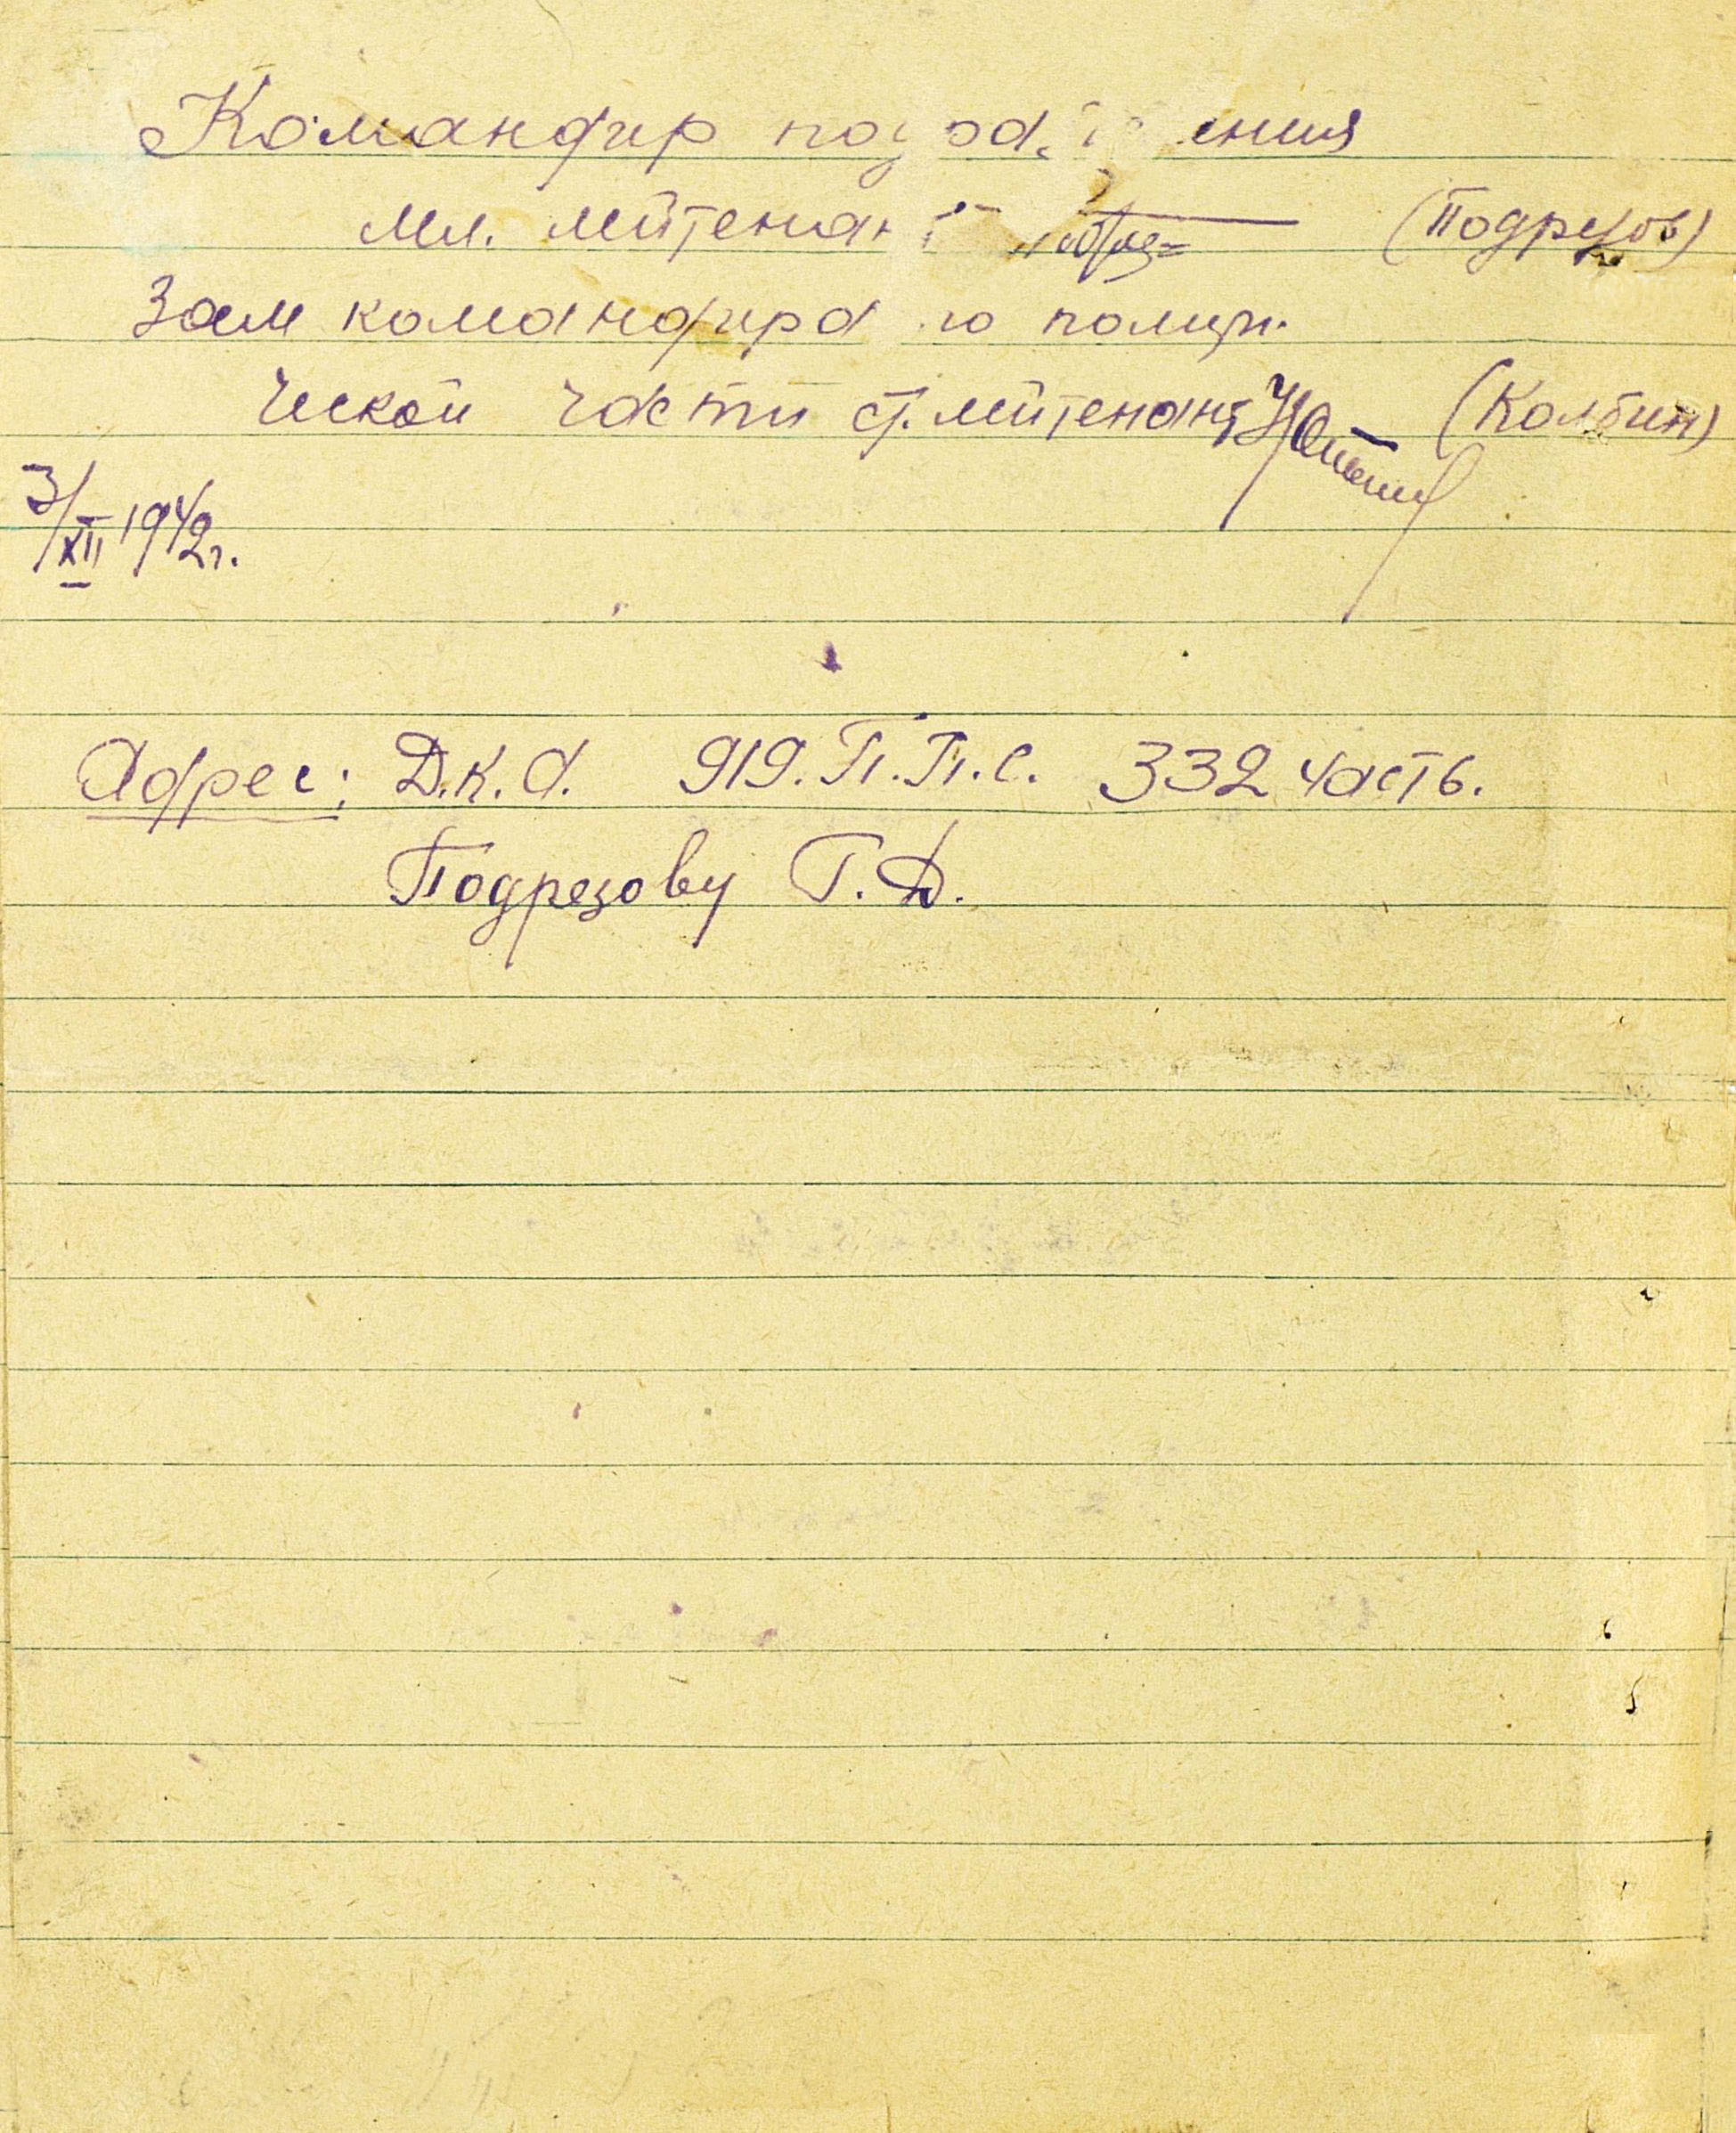 Командир
мл. лейтенант (Подрезов)
Зам командира по полити
ческой части ст. лейтенант (Колбин)
3/XII 1942г.
Адрес: Д.К.А. 919. П.П.С. 332 часть.
Подрезову Г. Д.